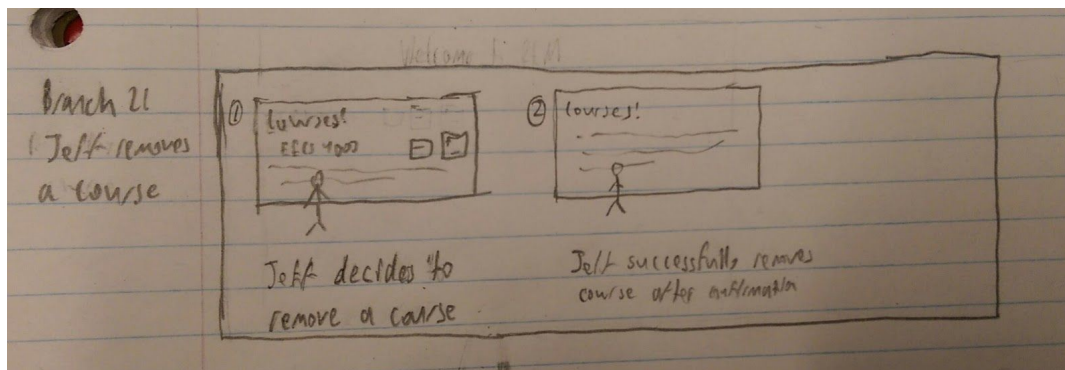 Branch 21
Jeff removes
a course
①
Courses!
EECS 4000
Jeff decides to
remove a course
②
Courses!
Jeff successfully removes
course after confirmation